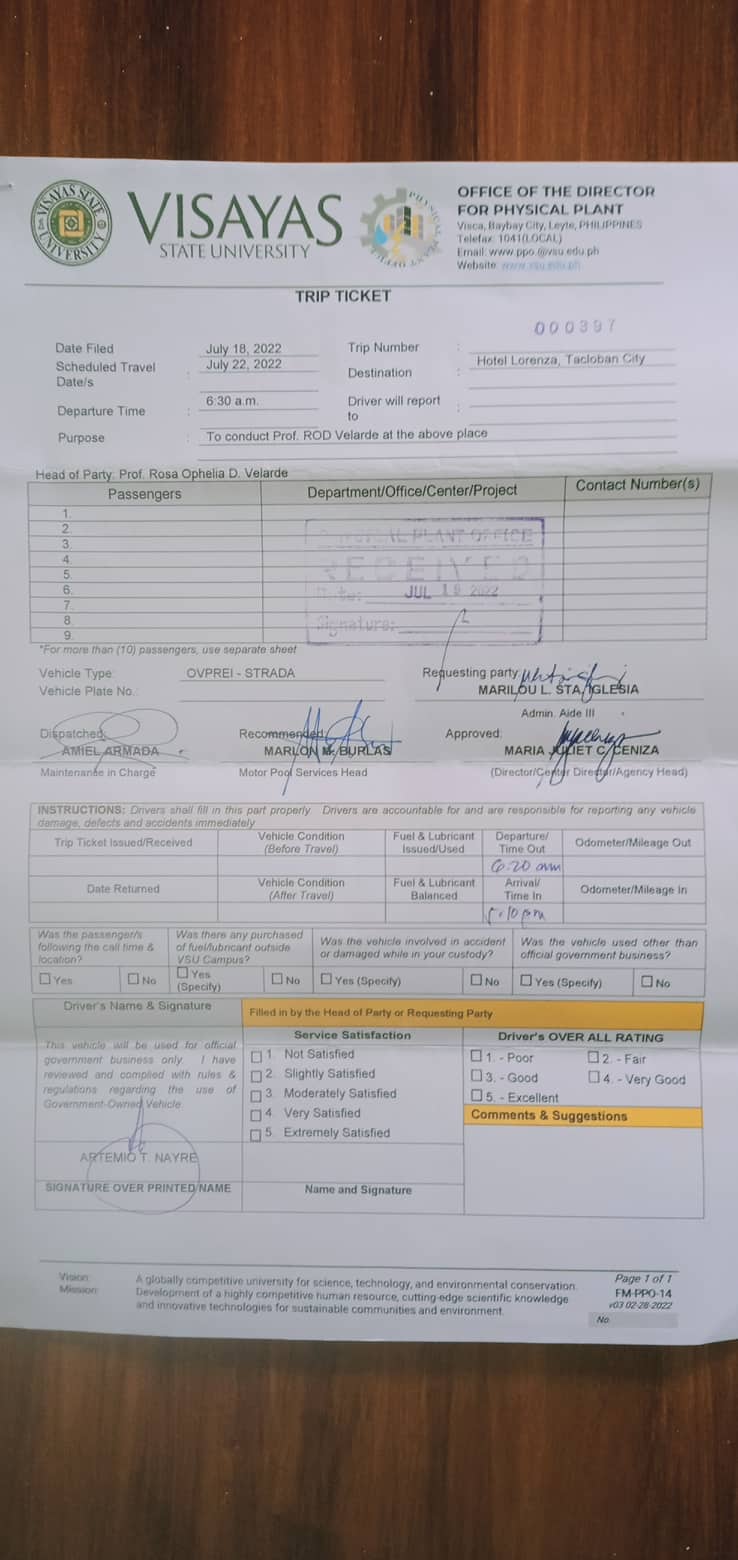 VISAYAS STATE UNIVERSITY
VISAYAS
STATE UNIVERSITY
PHYSICAL PLANT OFFICE
OFFICE OF THE DIRECTOR
FOR PHYSICAL PLANT
Visca, Baybay City, Leyte, PHILIPPINES
Telefax: 1041(LOCAL)
Email: www.ppo.@vsu.edu.ph
Website: www.vsu.edu.ph
TRIP TICKET
000397
Date Filed July 18, 2022 Trip Number :
Scheduled Travel Date/s : July 22, 2022 Destination : Hotel Lorenza, Tacloban City
Departure Time : 6:30 a.m. Driver will report to :
Purpose : To conduct Prof. ROD Velarde at the above place
Head of Party: Prof. Rosa Ophelia D. Velarde
Passengers Department/Office/Center/Project Contact Number(s)
1.
2.
3.
4.
5.
6.
7.
8.
9.
PLANT OFFICE
RECEIVED
Date: JUL 19 2022
Signature:
*For more than (10) passengers, use separate sheet
Vehicle Type: OVPREI - STRADA Requesting party:
Vehicle Plate No.: MARILOU L. STA. IGLESIA
Admin. Aide III
Dispatched: Recommended: Approved:
AMIEL ARMADA MARLON M. BURLAS MARIA JULIET C. CENIZA
Maintenance in Charge Motor Pool Services Head (Director/Center Director/Agency Head)
INSTRUCTIONS: Drivers shall fill in this part properly Drivers are accountable for and are responsible for reporting any vehicle
damage, defects and accidents immediately
Trip Ticket Issued/Received Vehicle Condition (Before Travel) Fuel & Lubricant Issued/Used Departure/ Time Out Odometer/Mileage Out
6:20 am
Date Returned Vehicle Condition (After Travel) Fuel & Lubricant Balanced Arrival/ Time In Odometer/Mileage In
5:10 pm
Was the passenger/s following the call time & location? Was there any purchased of fuel/lubricant outside VSU Campus? Was the vehicle involved in accident or damaged while in your custody? Was the vehicle used other than official government business?
Yes No Yes (Specify) No Yes (Specify) No Yes (Specify) No
Driver's Name & Signature Filled in by the Head of Party or Requesting Party
Service Satisfaction Driver's OVER ALL RATING
This vehicle will be used for official
government business only. I have
reviewed and complied with rules &
regulations regarding the use of
Government-Owned Vehicle.
1. Not Satisfied
2. Slightly Satisfied
3. Moderately Satisfied
4. Very Satisfied
5. Extremely Satisfied
1. - Poor 2. - Fair
3. - Good 4. - Very Good
5. - Excellent
Comments & Suggestions
ARTEMIO T. NAYRE
SIGNATURE OVER PRINTED NAME Name and Signature
Vision: A globally competitive university for science, technology, and environmental conservation.
Mission: Development of a highly competitive human resource, cutting-edge scientific knowledge
and innovative technologies for sustainable communities and environment.
Page 1 of 1
FM-PPO-14
v03 02-28-2022
No.